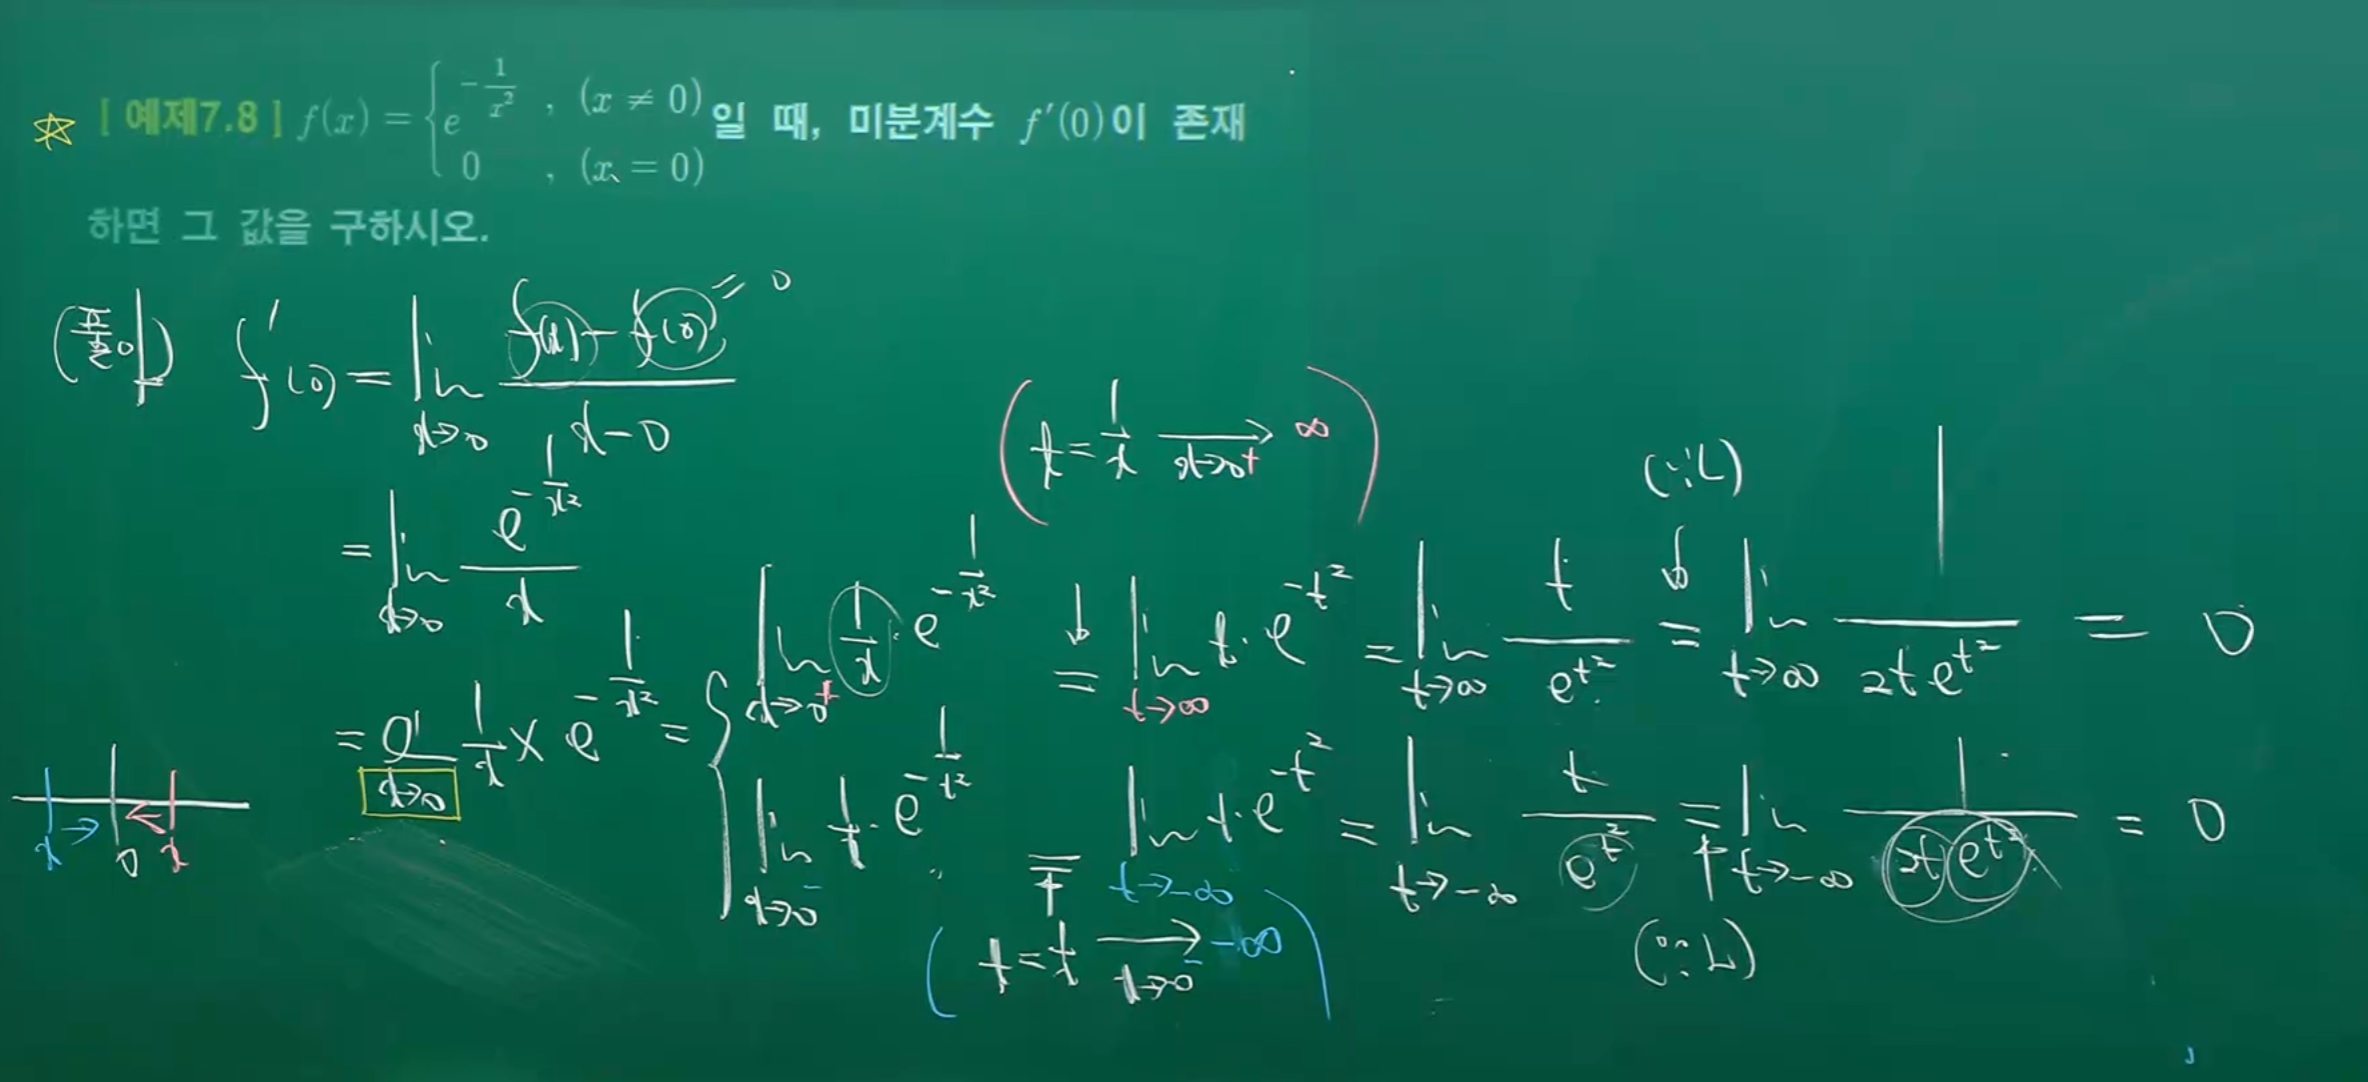 ☆ [예제7.8] f(x) = { e^{-1/x²} , (x ≠ 0)
0 , (x = 0) 일 때, 미분계수 f'(0)이 존재
하면 그 값을 구하시오.
(풀이) f'(0) = lim_{x→0} (f(x) - f(0)) / (x - 0) = 0
= lim_{x→0} e^{-1/x²} / x
( t = 1/x →_{x→0+} ∞ )
(∵L)
= lim_{x→0} 1/x × e^{-1/x²} = { lim_{x→0+} 1/x · e^{-1/x²} = lim_{t→∞} t · e^{-t²} = lim_{t→∞} t / e^{t²} = lim_{t→∞} 1 / 2t e^{t²} = 0
lim_{x→0-} 1/x · e^{-1/x²} = lim_{t→-∞} t · e^{-t²} = lim_{t→-∞} t / e^{t²} = lim_{t→-∞} 1 / 2t e^{t²} = 0
x → 0 ← x
( t = 1/x →_{x→0-} -∞ )
(∵L)